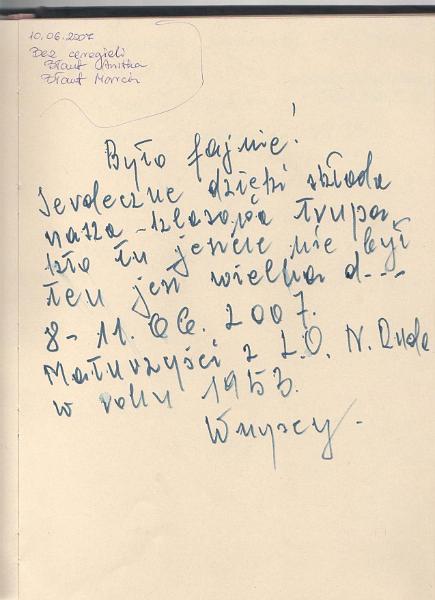 10.06.2007
Bez ceregieli
Było fajnie!
Serdeczne dzięki składa
nasza klasowa trupa
kto tu jeszcze nie był
ten jest wielka d----
8-11.06.2007.
Maturzyści z L.O. N. Ruda
w roku 1953.
Wszyscy.